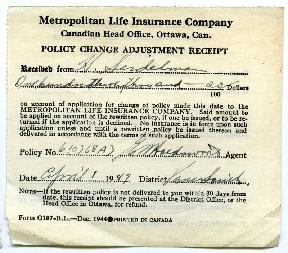 Metropolitan Life Insurance Company
Canadian Head Office, Ottawa, Can.
POLICY CHANGE ADJUSTMENT RECEIPT
Received from
One hundred three Dollars
100
on account of application for change of policy made this date to the
METROPOLITAN LIFE INSURANCE COMPANY. Said amount to
be applied on account of the rewritten policy, if one be issued, or to be re-
turned if the application is declined. No insurance is in force upon said
application unless and until a rewritten policy be issued thereon and
delivered in accordance with the terms of such application.
Policy No. Agent
Date April 1 1949 District
NOTE: If the rewritten policy is not delivered to you within 30 days from
date, this receipt should be presented at the District Office, or the
Head Office in Ottawa, for refund.
Form O187-B.L.—Dec. 1944 PRINTED IN CANADA